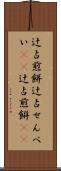 辻占煎餅辻占せんべ
い 辻占煎餅